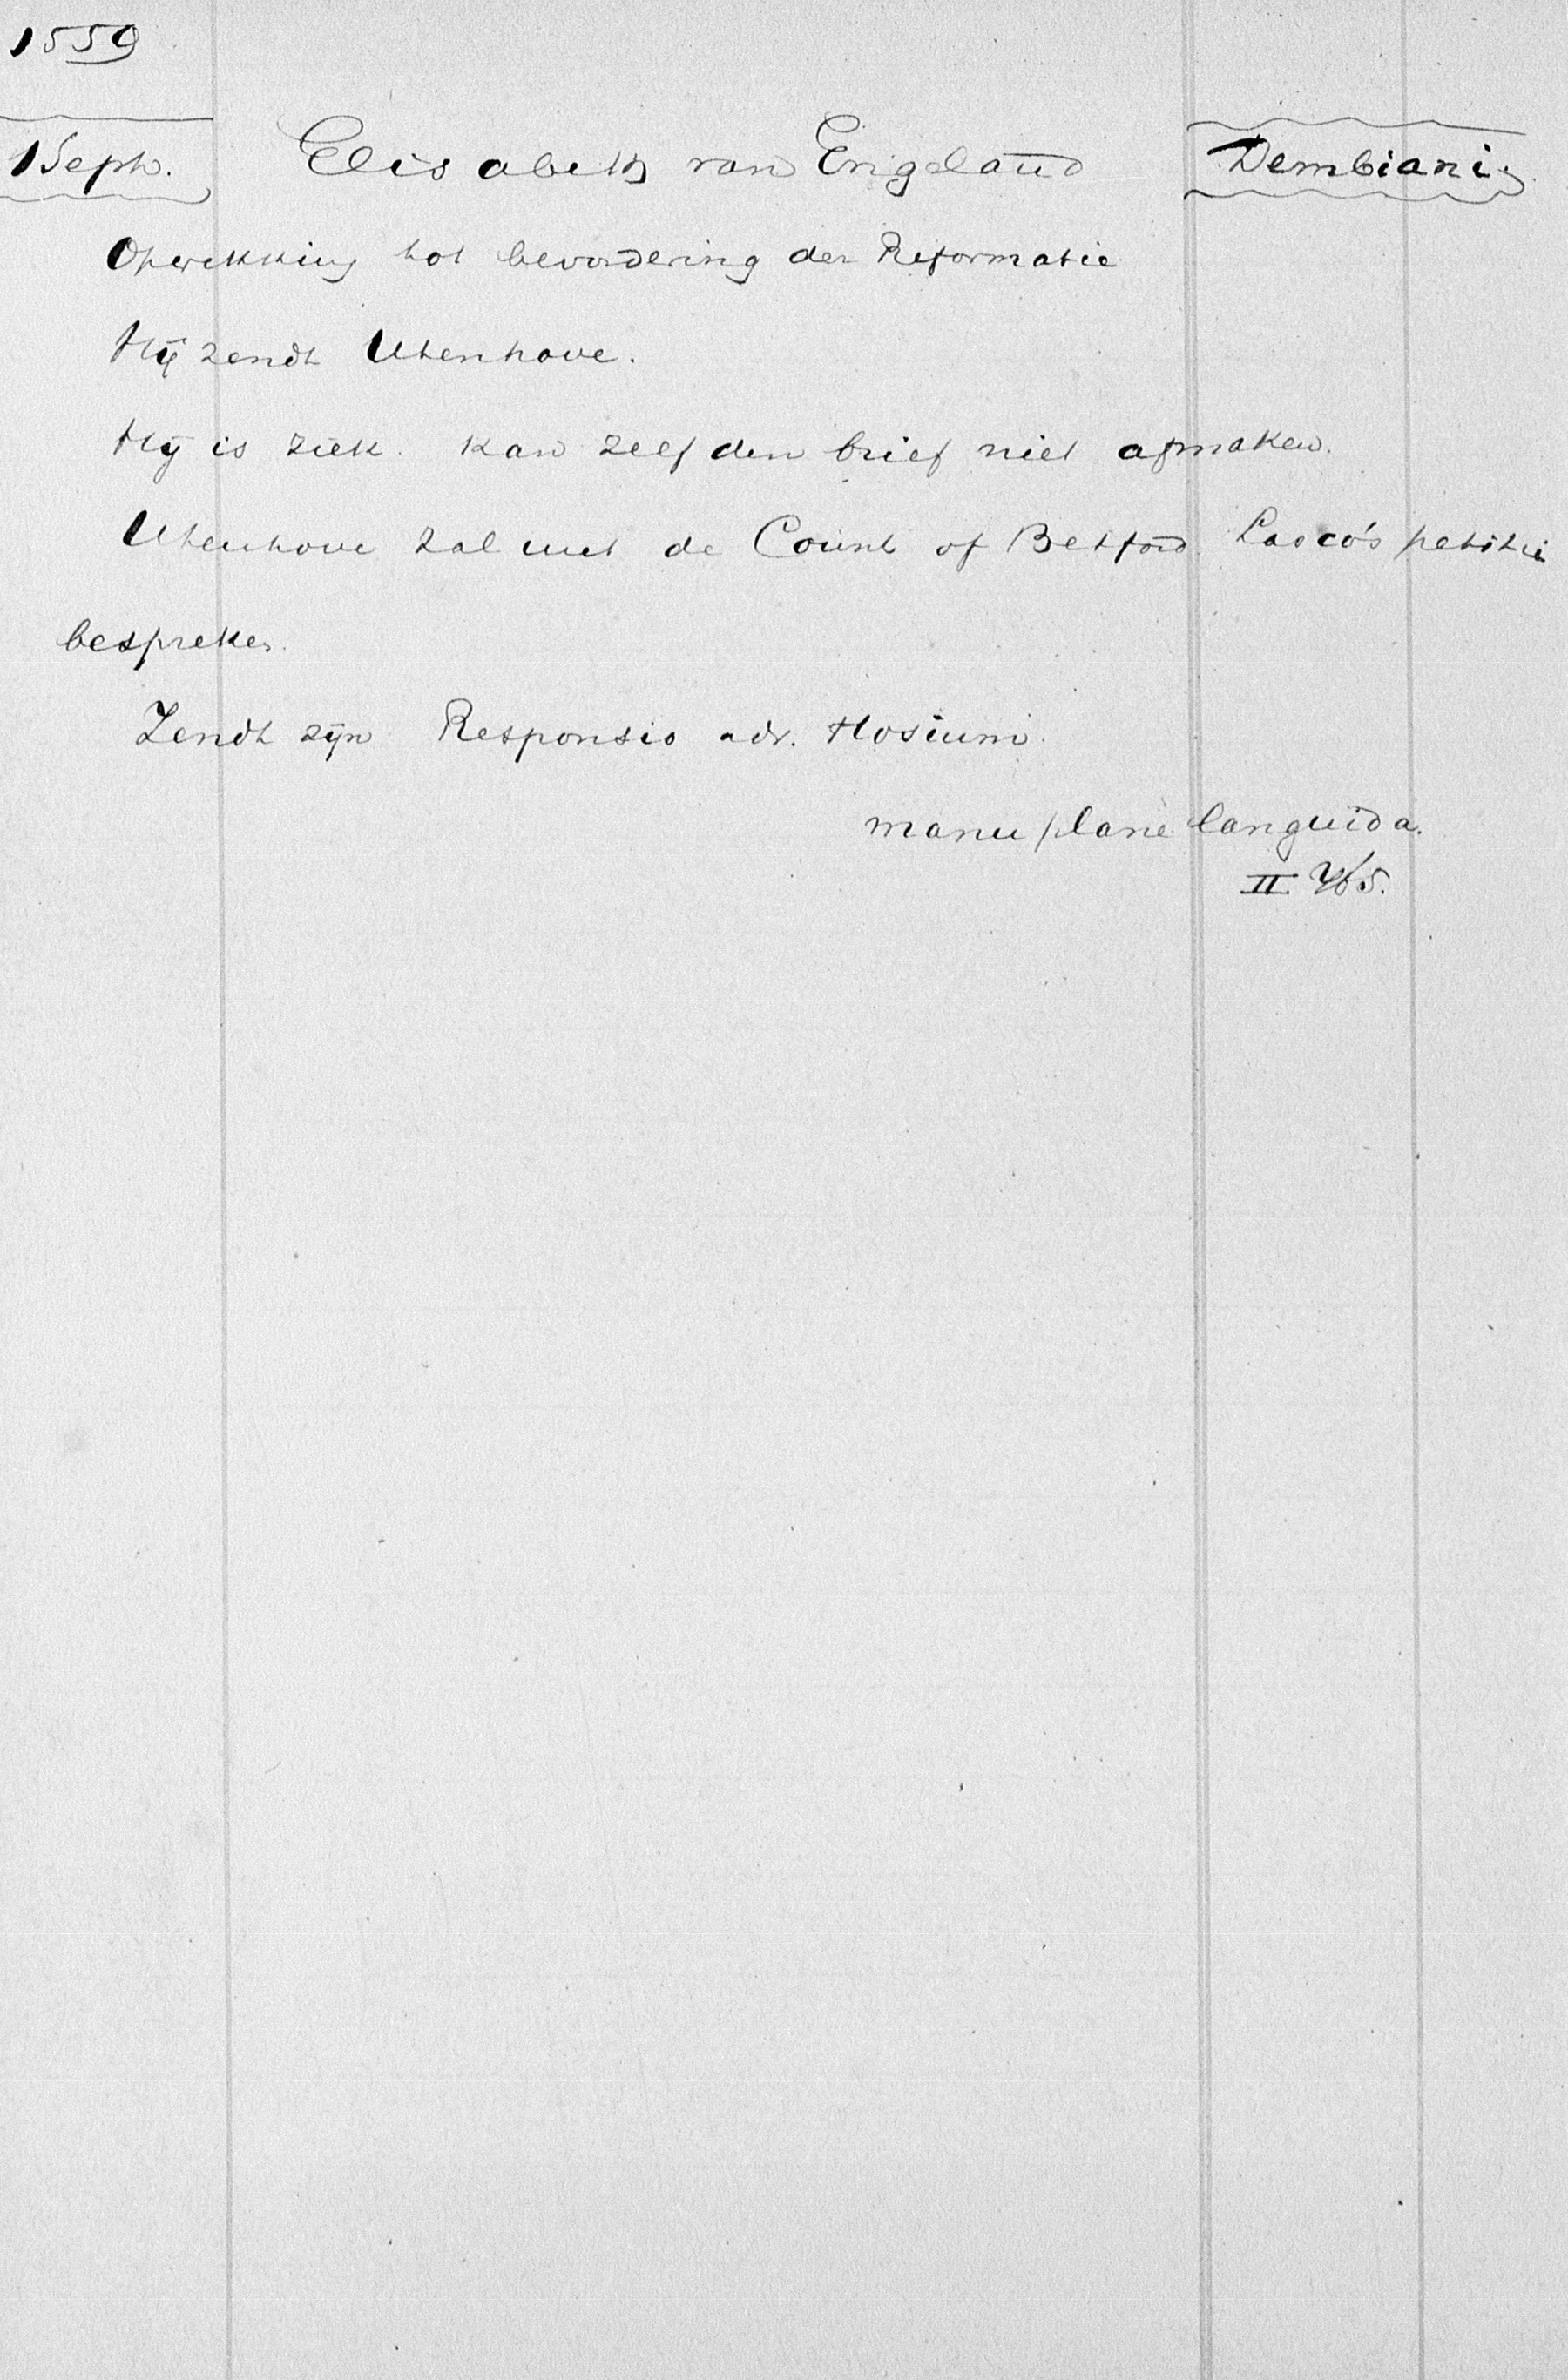 1559
1 Sept. Elisabeth van Engeland Dembiani.
Opwekking tot bevordering der Reformatie
Hij zendt Utenhove.
Hij is ziek. kan zelf den brief niet afmaken.
Utenhove zal met de Count of Betford Lasco's petitie
bespreken.
Zendt zijn Responsio adv. Hosium.
manu plane languida.
II 765.